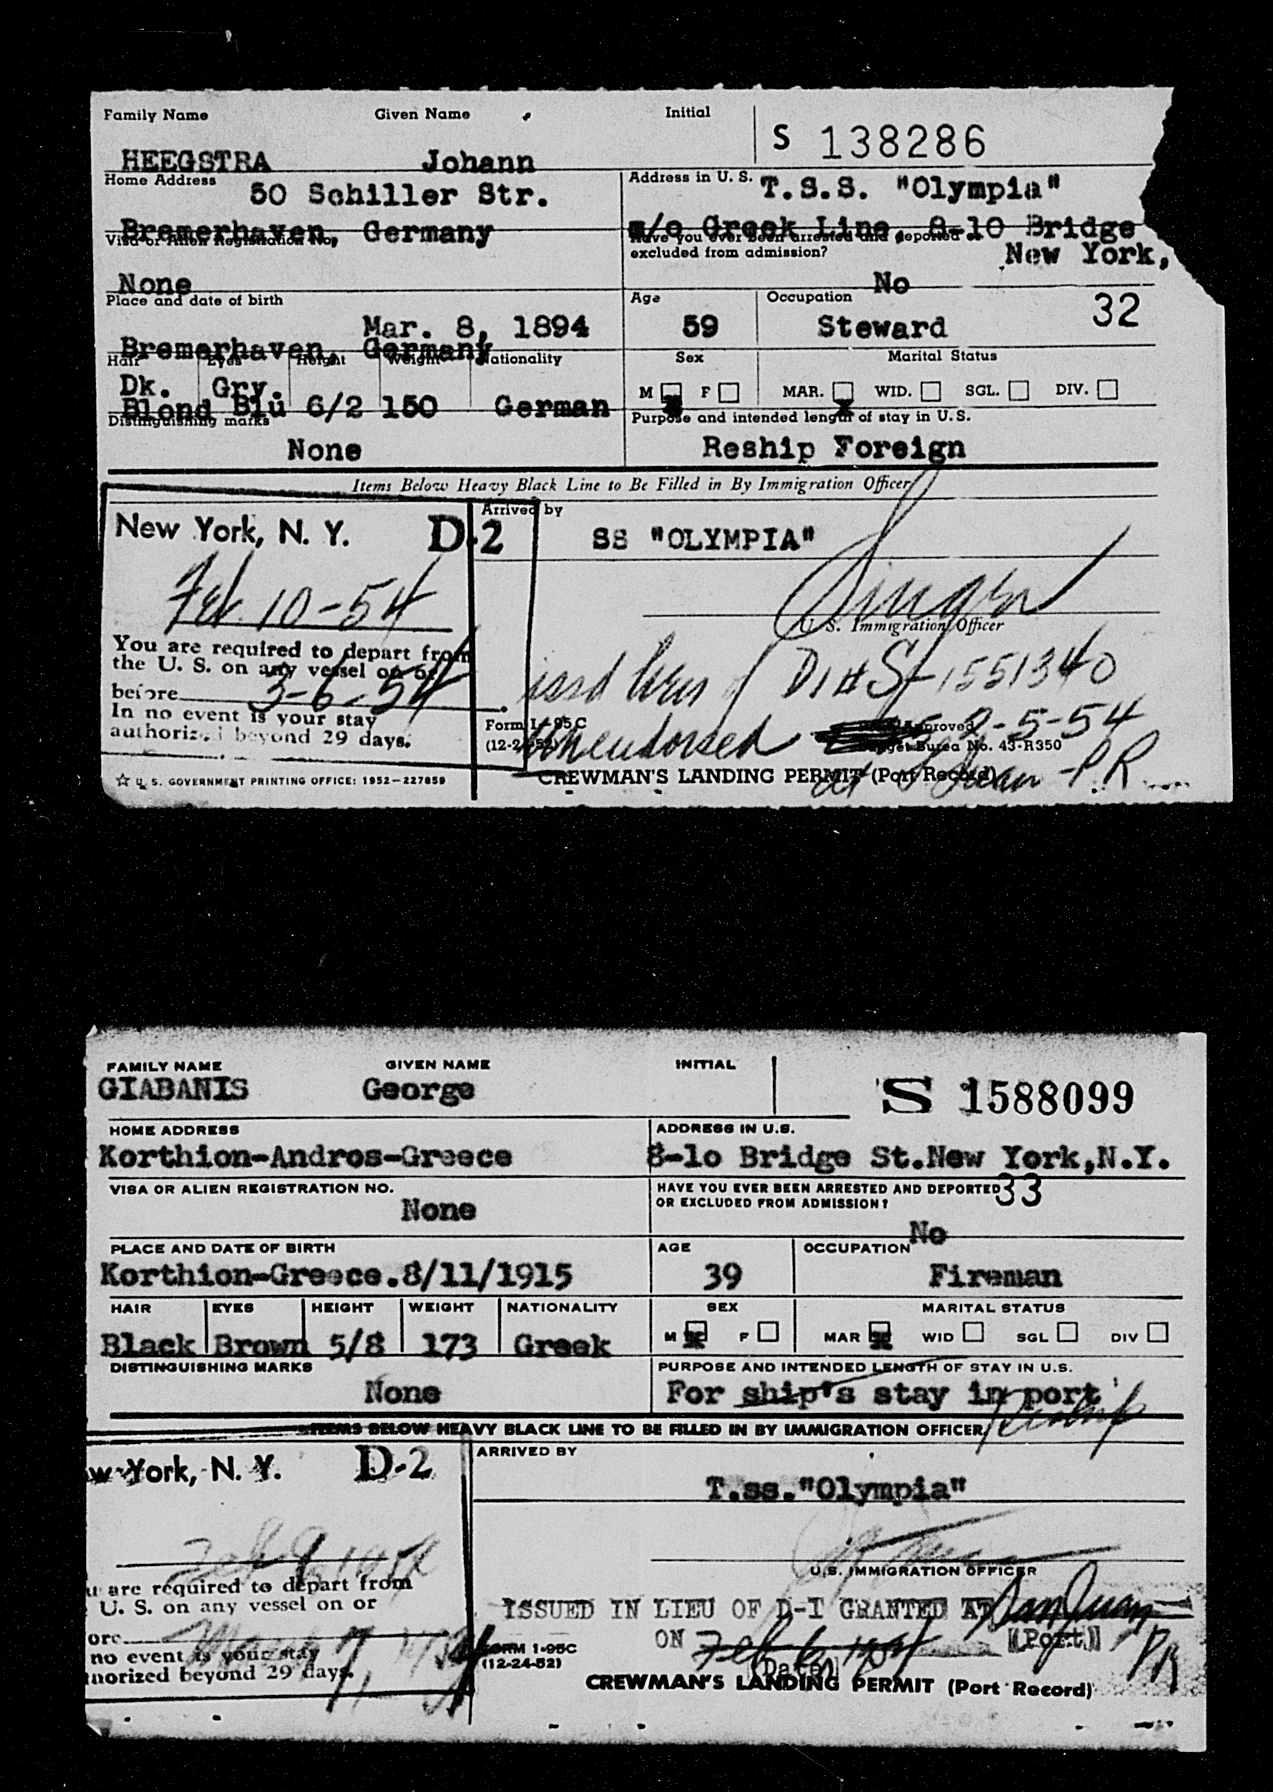 Family Name Given Name Initial
S 138286
HEEGSTRA Johann
Home Address 50 Schiller Str.
Address in U. S. T.S.S. "Olympia"
Bremerhaven, Germany
c/o Greek Line, 8-10 Bridge
Visa or Alien Registration No.
Have you ever been arrested and deported or
excluded from admission?
New York,
None
No
Place and date of birth
Age Occupation 32
Mar. 8, 1894
59 Steward
Bremerhaven, Germany
Hair Eyes Height Weight Nationality
Sex Marital Status
Dk. Gry.
M F MAR. WID. SGL. DIV.
Blond Blu 6/2 150 German
Distinguishing marks
Purpose and intended length of stay in U.S.
None
Reship Foreign
Items Below Heavy Black Line to Be Filled in By Immigration Officer
New York, N. Y. D-2
Arrived by
SS "OLYMPIA"
Feb. 10-54
U. S. Immigration Officer
You are required to depart from
the U. S. on any vessel on or
before 3-6-54
In no event is your stay
authorized beyond 29 days.
issd lieu of D1 # S-1551340
Form I-95C
(12-24-52)
unendorsed 2-5-54
Approved
Budget Bureau No. 43-R350
☆ U. S. GOVERNMENT PRINTING OFFICE: 1952—227859
CREWMAN'S LANDING PERMIT (Port Record)
at S Juan - P.R.
FAMILY NAME GIVEN NAME INITIAL
GIABANIS George
S 1588099
HOME ADDRESS
ADDRESS IN U.S.
Korthion-Andros-Greece
8-lo Bridge St.New York,N.Y.
VISA OR ALIEN REGISTRATION NO.
HAVE YOU EVER BEEN ARRESTED AND DEPORTED 33
OR EXCLUDED FROM ADMISSION?
None
No
PLACE AND DATE OF BIRTH
AGE OCCUPATION
Korthion-Greece.8/11/1915
39 Fireman
HAIR EYES HEIGHT WEIGHT NATIONALITY
SEX MARITAL STATUS
Black Brown 5/8 173 Greek
M F MAR WID SGL DIV
DISTINGUISHING MARKS
PURPOSE AND INTENDED LENGTH OF STAY IN U.S.
None
For ship's stay in port
Reship
ITEMS BELOW HEAVY BLACK LINE TO BE FILLED IN BY IMMIGRATION OFFICER
w York, N. Y. D-2
ARRIVED BY
T.ss."Olympia"
Feb 9, 1954
U.S. IMMIGRATION OFFICER
u are required to depart from
U. S. on any vessel on or
ISSUED IN LIEU OF D-I GRANTED AT San Juan
ore March 7, 1954
ON Feb 6, 1954 (Port) PR
no event is your stay
FORM I-95C
(12-24-52)
(Date)
horized beyond 29 days.
CREWMAN'S LANDING PERMIT (Port Record)